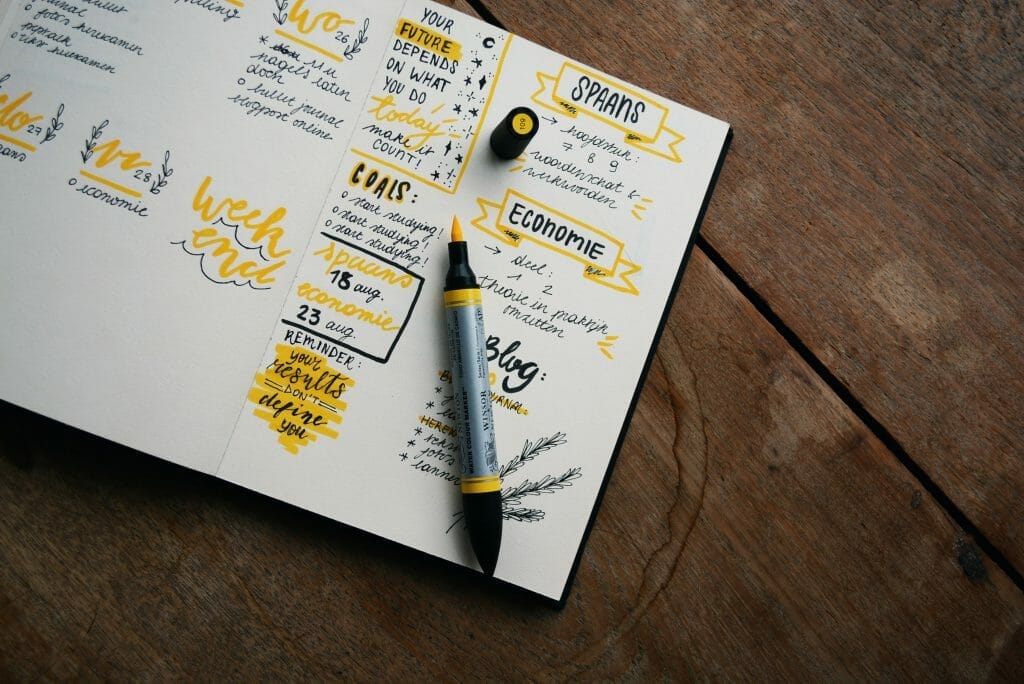 journal
o foto's herexamen
o herexamen
wo 26
nagels laten
doen
o bullet journal
blogpost online
do 27
vr 28
o economie
week
end
YOUR
FUTURE
DEPENDS
ON WHAT
YOU DO
today
make it
COUNT!
GOALS:
o start studying!
o start studying!
o start studying!
spaans
18 aug.
economie
23 aug.
REMINDER:
your
results
DON'T
define
you
SPAANS
→ hoofdstuk:
7 8 9
woordenschat &
werkwoorden
ECONOMIE
→ deel:
1 2
theorie in praktijk
omzetten
Blog:
109
WATER COLOUR MARKER
WINSOR